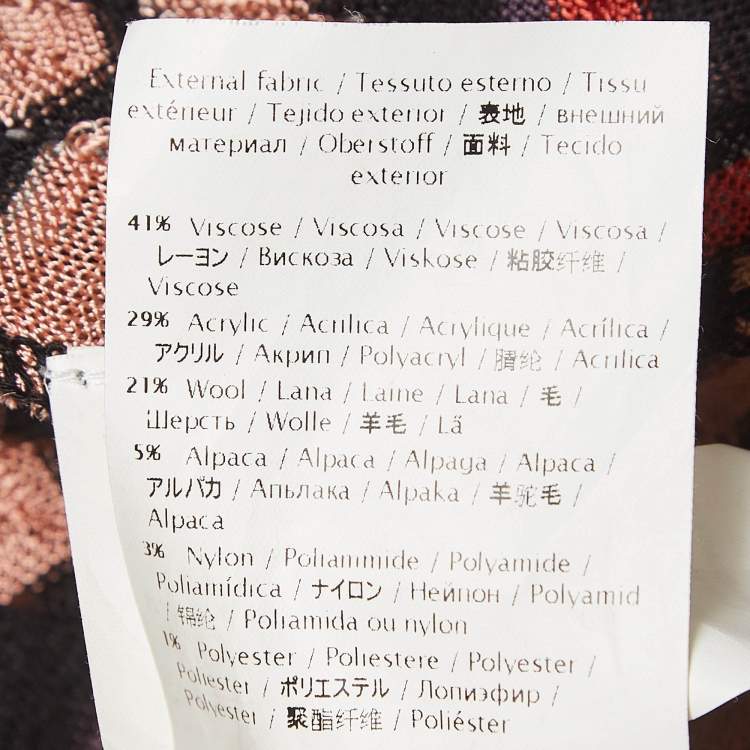 External fabric / Tessuto esterno / Tissu
extérieur / Tejido exterior / 表地 / внешний
материал / Oberstoff / 面料 / Tecido
exterior
41% Viscose / Viscosa / Viscose / Viscosa /
レーヨン / Вискоза / Viskose / 粘胶纤维 /
Viscose
29% Acrylic / Acrilica / Acrylique / Acrílica /
アクリル / Акрил / Polyacryl / 腈纶 / Acrilica
21% Wool / Lana / Laine / Lana / 毛 /
Шерсть / Wolle / 羊毛 / Lã
5% Alpaca / Alpaca / Alpaga / Alpaca /
アルパカ / Апьлака / Alpaka / 羊驼毛 /
Alpaca
3% Nylon / Poliammide / Polyamide /
Poliamídica / ナイロン / Нейлон / Polyamid
/ 锦纶 / Poliamida ou nylon
1% Polyester / Poliestere / Polyester /
Poliester / ポリエステル / Лолиэфир /
Polyester / 聚酯纤维 / Poliéster